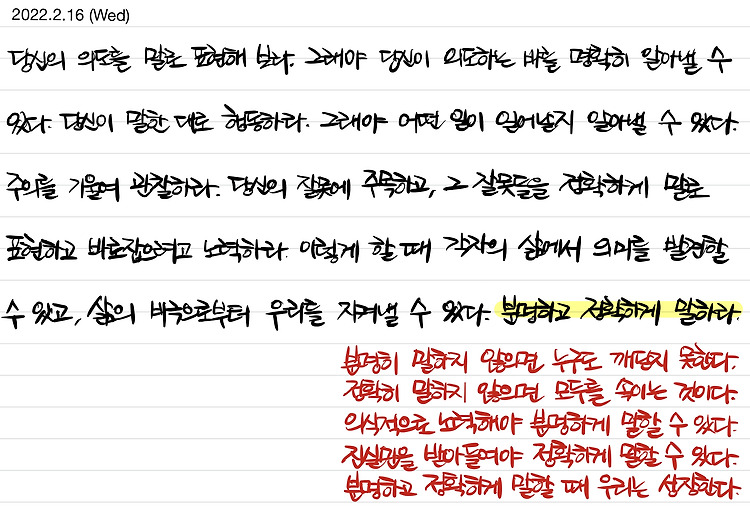 2022.2.16 (Wed)
당신의 의도를 말로 표현해 보라. 그래야 당신이 의도하는 바를 명확히 알아낼 수
있다. 당신이 말한 대로 행동하라. 그래야 어떤 일이 일어날지 알아낼 수 있다.
주의를 기울여 관찰하라. 당신의 잘못에 주목하고, 그 잘못들을 정확하게 말로
표현하고 바로잡으려고 노력하라. 이렇게 할 때 각자의 삶에서 의미를 발견할
수 있고, 삶의 비극으로부터 우리를 지켜낼 수 있다. 분명하고 정확하게 말하라.
분명히 말하지 않으면 누구도 깨닫지 못한다.
정확히 말하지 않으면 모두를 속이는 것이다.
의식적으로 노력해야 분명하게 말할 수 있다.
진실만을 받아들여야 정확하게 말할 수 있다.
분명하고 정확하게 말할 때 우리는 성장한다.